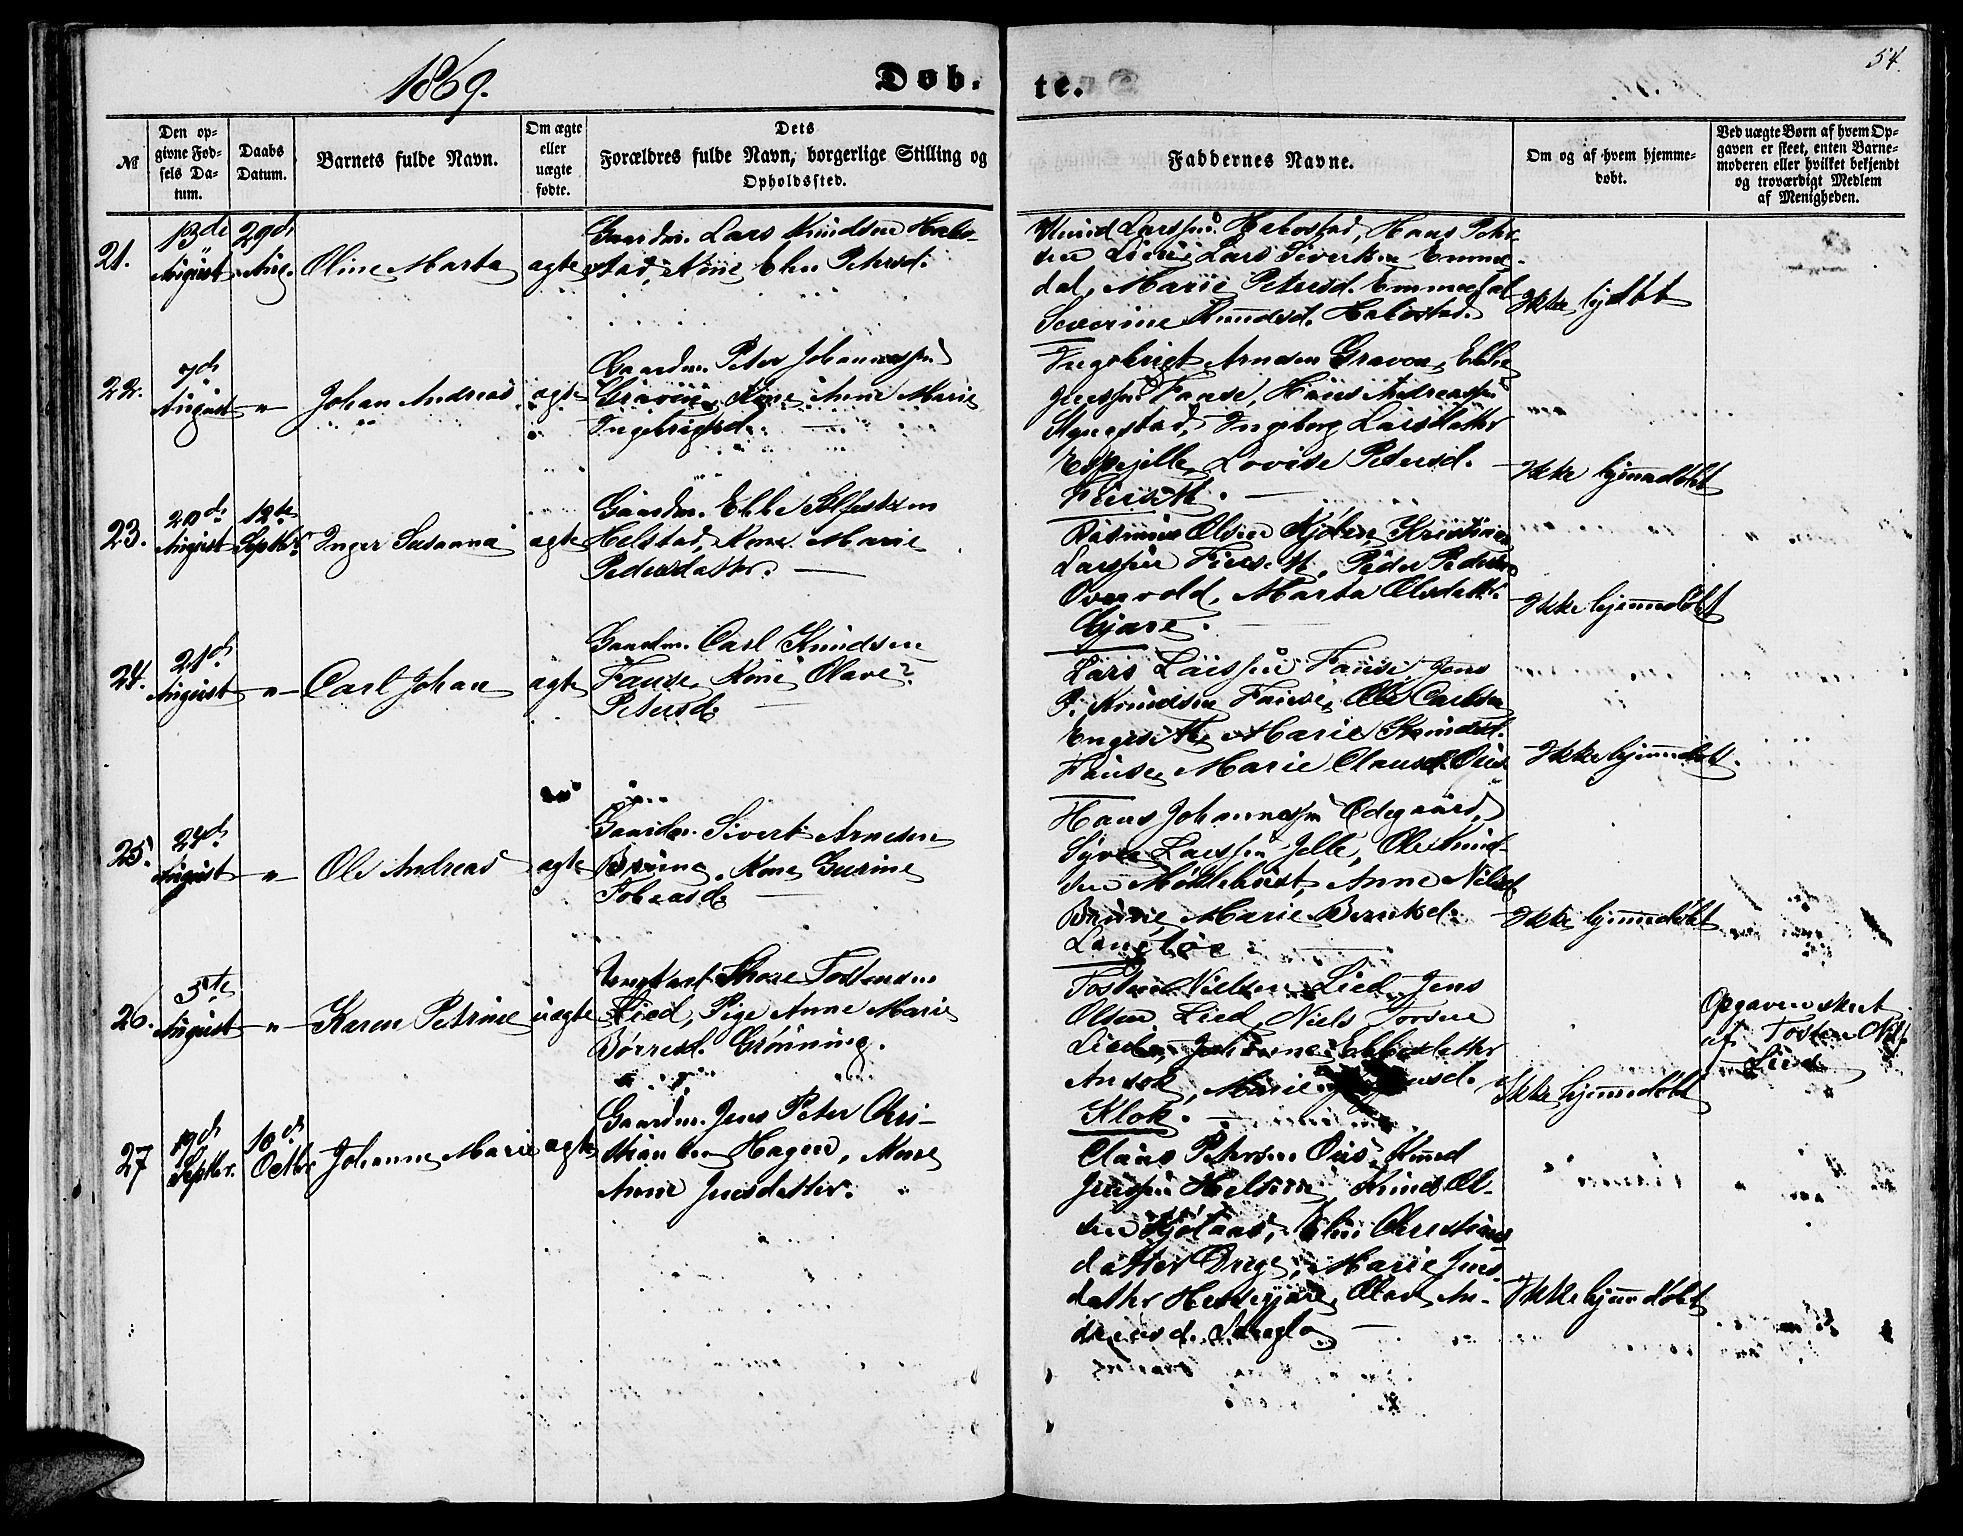 1869.
Døb-
te.
54.
№
Den op-
givne Fød-
sels Da-
tum.
Daabs
Datum.
Barnets fulde Navn.
Om ægte
eller
uægte
fødte.
Dets
Forældres fulde Navn, borgerlige Stilling og
Opholdssted.
Faddernes Navne.
Om og af hvem hjemme-
døbt.
Ved uægte Børn af hvem Op-
gaven er skeet, enten Barne-
moderen eller hvilket bekjendt
og troværdigt Medlem
af Menigheden.
21.
13de
August
29de
Aug.
Oline Marta
ægte
Gaardm. Lars Knudsen Habo-
stad, Kone Elen Petersd.
Knud Larssen Habostad, Hans Peter
sen Lars Sivertsen Emme-
dal, Marie Petersd. Emmedal
Severine Knudsd. Habostad.
Ikke hjdøbt
22.
7de
August
"
Johan Andreas
ægte
Gaardm. Peter Johannessen
Graven, Kone Anne Marie
Ingebrigtsd.
Ingebrigt Arnesen Graven, Ebbe
Jenssen Fause, Hans Andreassen
Ingeborg Larsdatter
Lovise Petersd.
Ikke hjemmedøbt
23.
20de
August
12te
Septbr
Inger Susanna
ægte
Gaardm. Ebbe
Helstad, Kone Marie
Pedersdatter.
Rasmus Olsen Kristian
Larssen Peder Pedersen
Overvold, Marta Olsdatter
Gjære.
Ikke hjemmedøbt
24.
21de
August
"
Carl Johan
ægte
Gaardm. Carl Knudsen
Fause, Kone Olave
Petersd.
Lars Larssen Fause, Jens
P. Knudsen Fause, Ole Carlsen
Engeseth, Marie Knudsd.
Fause, Marie Clausd. Ous
Ikke hjemmedøbt.
25.
24de
August
"
Ole Andreas
ægte
Gaardm. Sivert Arnesen
Brune, Kone Gurine
Tobiasd.
Hans Johannessen Ødegaard,
Syver Larssen Jelle, Ole Knud-
sen Anne Nilsd.
Brune, Marie Berntsd.
Langløe.
Ikke hjemmedøbt
26.
5te
August
"
Karen Petrine
uægte
Ungkarl Thore Tostensen
Lied, Pige Anne Marie
Børresd. Grønning.
Tosten Nielsen Lied, Jens
Olsen Lied, Niels Torsen
Lied, Johanne Ebbesdatter
Ansok, Marie
Klok.
Ikke hjemmedøbt
Opgaven skeet
af Tosten Niels.
Lied
27
19de
Septbr.
10de
Octbr
Johanne Marie
ægte
Gaardm. Jens Peter Chri-
stiansen Hagen, Kone
Anne Jensdatter.
Claus Petersen Ous, Knud
Jenssen Knud Ol-
sen Elen Christians
datter Drage, Marie Jens-
datter Hessegjære, Olave An-
dreasd.
Ikke hjemmedøbt